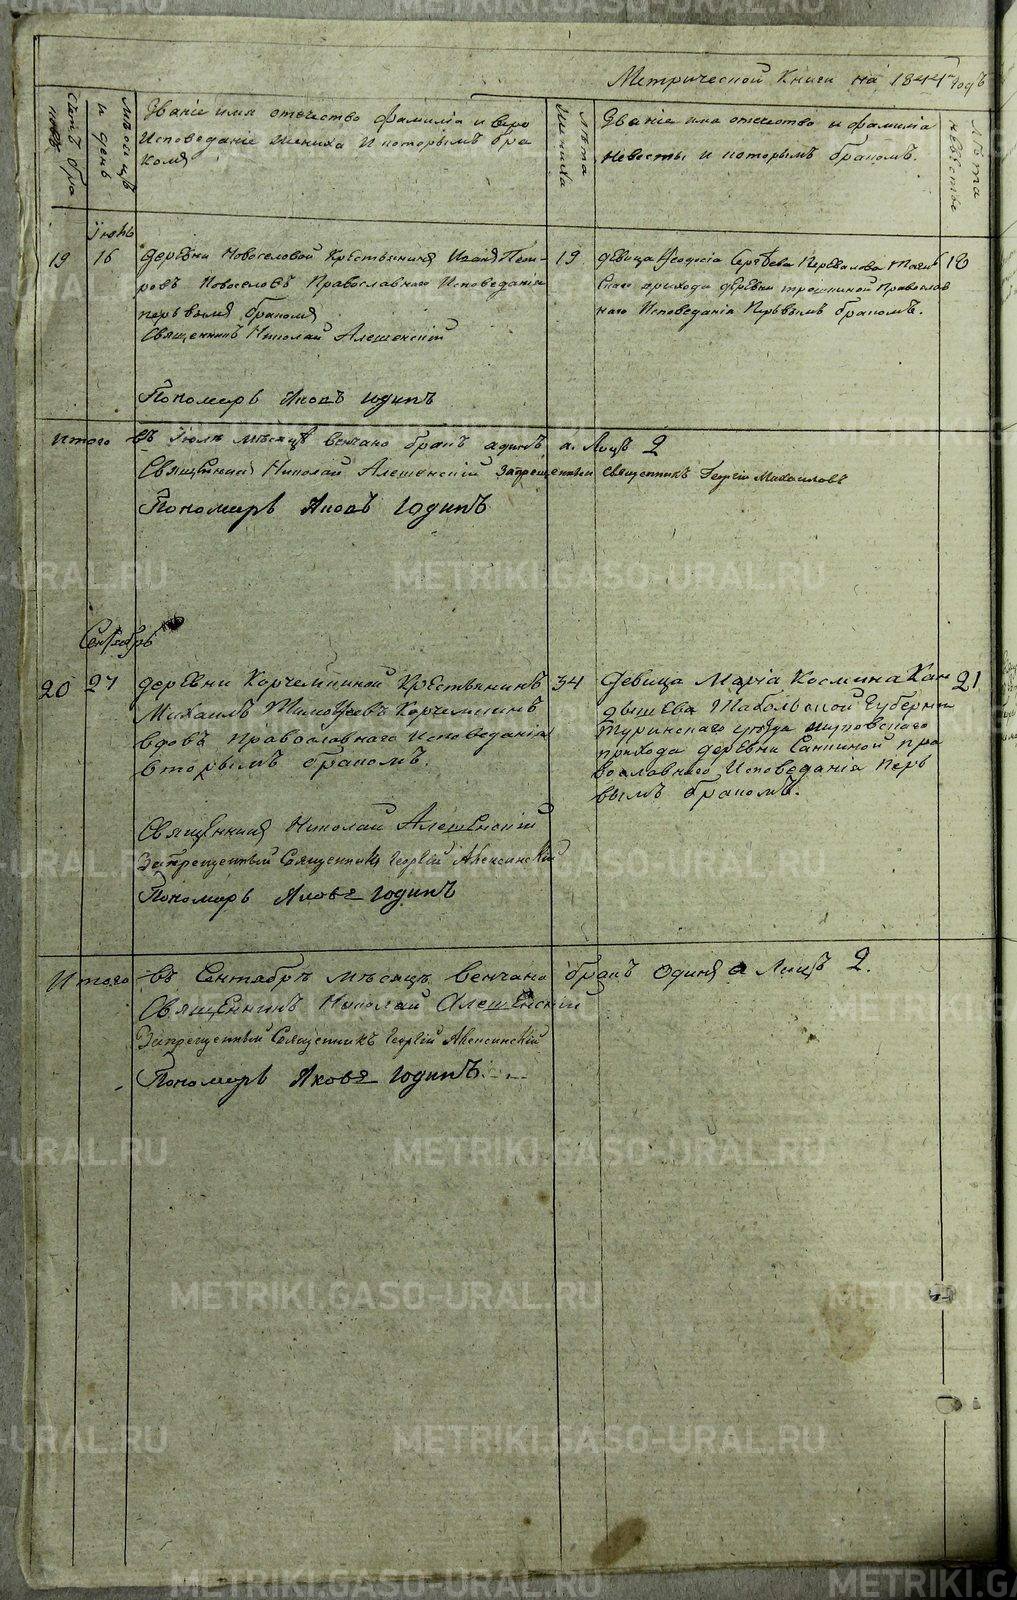 Метрической Книги на 1844 годъ
Счетъ бра
ковъ
Мѣсяцъ
и день
Званіе имя отчество фамилія и веро
Исповеданіе жениха И которымъ бра
комъ
Лѣта
жениха
Званіе имя отчество и фамилія
невесты и которымъ бракомъ.
Лѣта
невесты
19
16
деревни Новоселовой Крестьянинъ Пет-
ровъ Новоселовъ Православнаго Исповеданія
первымъ бракомъ
Священникъ Николай Алешенскій
Пономарь Яковъ Годинъ
19
девица Феодосія Сергѣева
скаго прихода деревни Православ
наго Исповеданія Первымъ бракомъ.
18
Итого въ Іюлѣ мѣсяцѣ венчано бракъ одинъ а Лицъ 2
Священникъ Николай Алешенскій Запрещенный священникъ Георгій
Пономарь Яковъ Годинъ
Сентябрь
20
27
деревни Корчемкиной Крестьянинъ
Михаилъ Тимофеевъ Корчемкинъ
вдовъ православнаго исповеданія
вторымъ бракомъ.
Священникъ Николай Алешенскій
Запрещенный Священникъ Георгій
Пономарь Яковъ Годинъ
34
девица Марія Космина Кан
дышева Табольской Губерніи
Туринскаго уезда
прихода деревни пра
вославнаго Исповеданія пер
вымъ бракомъ.
21
Итого въ Сентябрѣ мѣсяцѣ венчано бракъ одинъ а Лицъ 2.
Священникъ Николай Алешенскій
Запрещенный Священникъ Георгій
Пономарь Яковъ Годинъ
METRIKI.GASO-URAL.RU